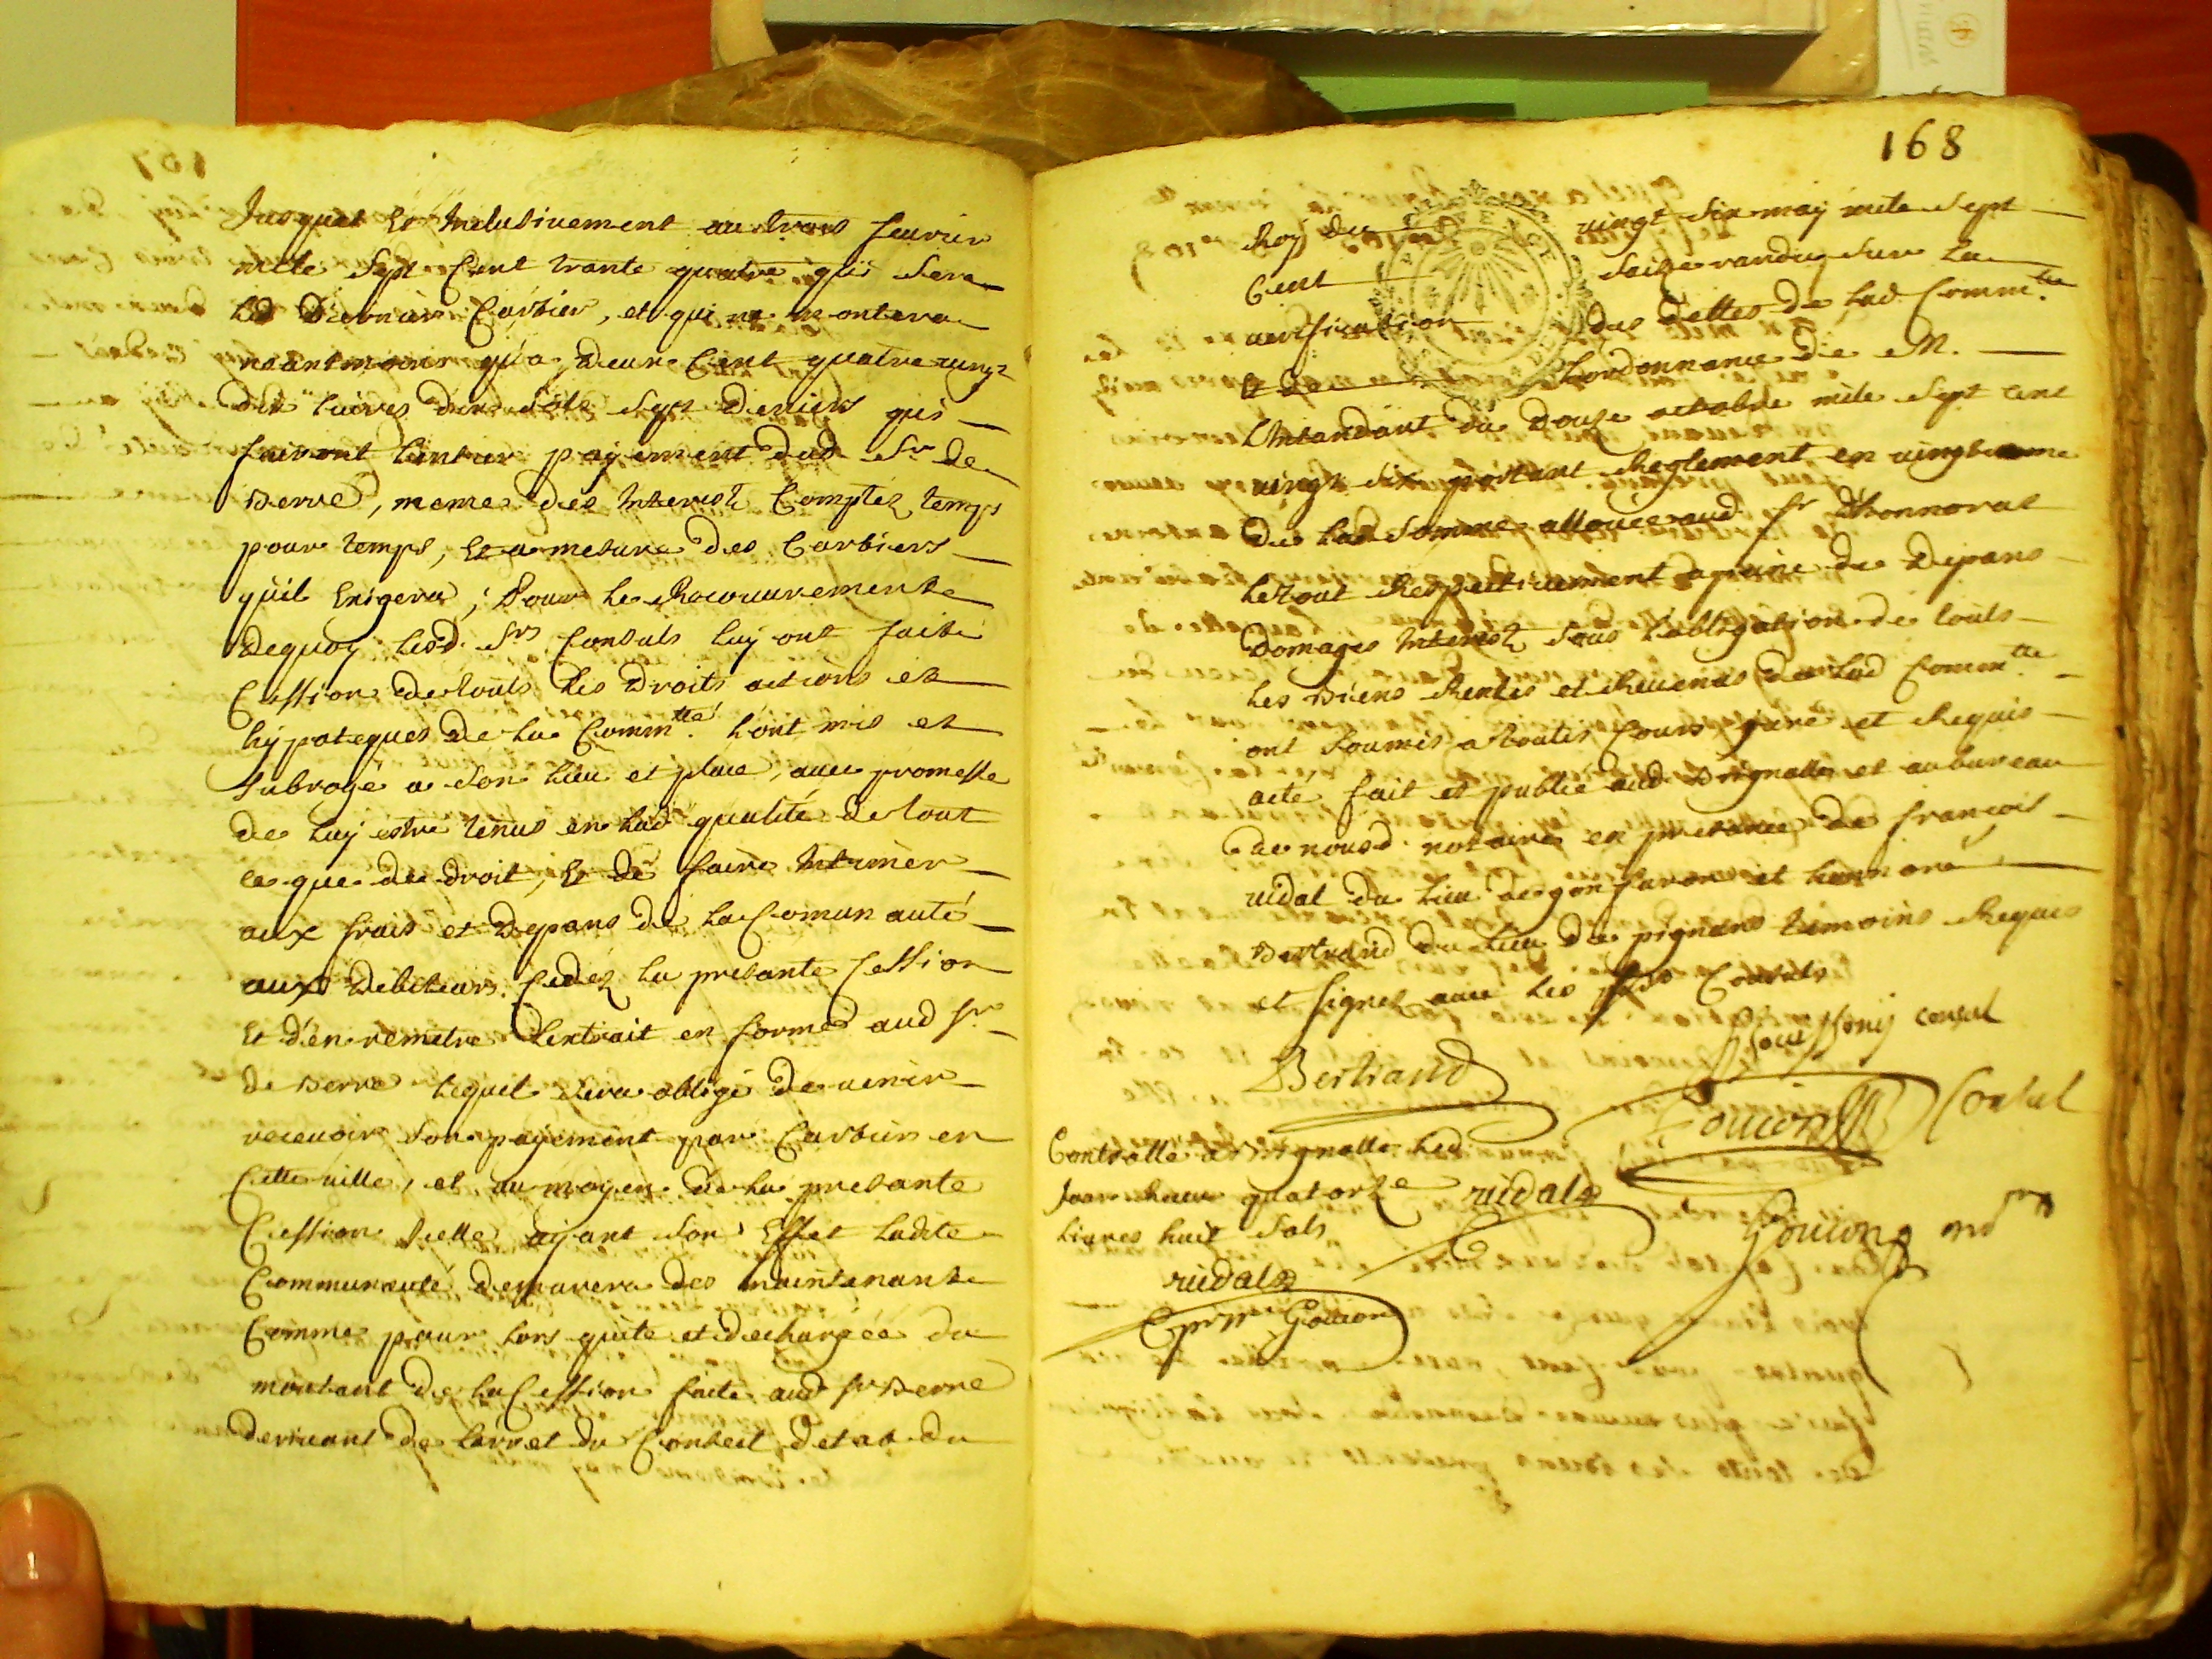 Jusques Et Inclusivement au trois fevrier
mille Sept Cent trante quatre qui Sera
Le Dernier Cartier, et qui ne montera
neantmoins qu'a Deux Cent quatre vingt
dix livres dix Sols Sept Deniers qui
fairont l'entier payement dud Sr de
Berre, meme des Interest Comptés temps
pour temps, Et a mesure des Cartiers
quil Exigera; Pour Le Recouvrement
dequoy lesd. Srs Consuls luy ont faite
Cession de touts les Droits actions et
hypoteques de La Comm.tté L'ont mis et
Subrogé a Son lieu et place, avec promesse
de Luy estre tenus en Lad qualité de tout
ce que de droit, Et de faire Intimer
aux frais et Depans de La Comunauté
aux Debiteurs Cedés La presante Cession
Et d'en remetre L'extrait en forme aud Sr
de Berre lequel Sera obligé de venir
recevoir Son payement par Cartiers en
Cette ville, et au moyen de La presante
Cession Icelle ayant Son Effet Ladite
Communauté demurera des maintenant
Comme pour Lors quite et dechargée du
montant de La Cession faite aud Sr Berre
derivant de l'arret du Conseil d'etat du
168
Roy du vingt Six may mile Sept
Cent Saize randu Sur La
verification des dettes de Lad Comm.tté
Et de Lordonnance de M.
L'Intandant du Douze octobre mile Sept cent
vingt Six portant Reglement en vingtieme
de Lad Somme allouée aud Sr d'honnorat
Le tout Respectivement a peine de Depans
Domages Interest Sous L'obligation de touts
Les Biens Rentes et Revenus de Lad Comm.tté
ont Soumis a toutes Cours juré et Requis
acte fait et publié aud Brignolle et au bureau
de nousd. notaire en presance de françois
vidal du Lieu de gonfaron et honnoré
Bertrand du Lieu de pignans temoins Requis
et Signés avec Les Srs Consuls
consul
Bertrand
Goujon Consul
Controllé a Brignolle Led
Jour Receu quatorze vidal
Livres huit Sols
Goujon no.re
vidal
Goujon